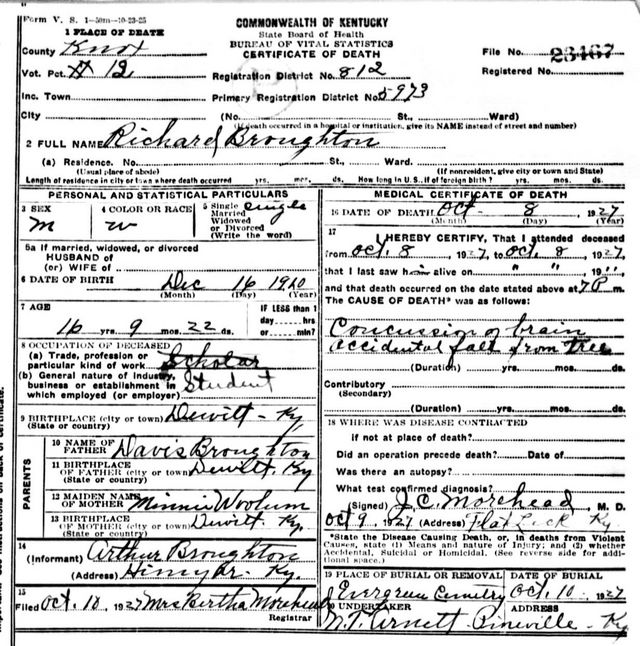 Form V. S. 1-50m-10-23-25
COMMONWEALTH OF KENTUCKY
State Board of Health
BUREAU OF VITAL STATISTICS
CERTIFICATE OF DEATH
1 PLACE OF DEATH
County Knox
File No. 23467
Vot. Pct. # 12
Registration District No. 812
Registered No.
Inc. Town
Primary Registration District No. 5973
City (No. St., Ward)
(If death occurred in a hospital or institution, give its NAME instead of street and number)
2 FULL NAME Richard Broughton
(a) Residence. No. St., Ward.
(Usual place of abode) (If nonresident, give city or town and State)
Length of residence in city or town where death occurred yrs. mos. ds. How long in U.S., if of foreign birth? yrs. mos. ds.
PERSONAL AND STATISTICAL PARTICULARS
3 SEX
M
4 COLOR OR RACE
W
5 Single
Married
Widowed
or Divorced
(Write the word)
Single
5a If married, widowed, or divorced
HUSBAND of
(or) WIFE of
6 DATE OF BIRTH Dec 16 1910
(Month) (Day) (Year)
7 AGE
16 yrs. 9 mos. 22 ds.
IF LESS than 1
day----hrs
or----min?
8 OCCUPATION OF DECEASED
(a) Trade, profession or
particular kind of work Scholar
(b) General nature of industry,
business or establishment in
which employed (or employer) Student
9 BIRTHPLACE (city or town) Dewitt - Ky
(State or country)
PARENTS
10 NAME OF
FATHER Davis Broughton
11 BIRTHPLACE
OF FATHER (city or town) Dewitt Ky
(State or country)
12 MAIDEN NAME
OF MOTHER Minnie Woolum
13 BIRTHPLACE
OF MOTHER (city or town) Dewitt Ky.
(State or country)
14
(Informant) Arthur Broughton
(Address) Ky.
15
Filed Oct. 10, 1927 Mrs Bertha Morehead
Registrar
MEDICAL CERTIFICATE OF DEATH
16 DATE OF DEATH Oct - 8, 1927
(Month) (Day) (Year)
17
I HEREBY CERTIFY, That I attended deceased
from Oct. 8, 1927, to Oct. 8, 1927,
that I last saw him alive on " ", 19"
and that death occurred on the date stated above at 7 P m.
The CAUSE OF DEATH* was as follows:
Concussion of brain
accidental fall from tree
(Duration) yrs. mos. ds.
Contributory
(Secondary)
(Duration) yrs. mos. ds.
18 WHERE WAS DISEASE CONTRACTED
if not at place of death?
Did an operation precede death? Date of
Was there an autopsy?
What test confirmed diagnosis?
(Signed) J. C. Morehead, M. D.
Oct 9, 1927 (Address) Flat Lick Ky
*State the Disease Causing Death, or, in deaths from Violent
Causes, state (1) Means and nature of Injury; and (2) whether
Accidental, Suicidal or Homicidal. (See reverse side for addi-
tional space.)
19 PLACE OF BURIAL OR REMOVAL
Evergreen Cemetery
DATE OF BURIAL
Oct. 10, 1927
20 UNDERTAKER
ADDRESS
N.T. Arnett - Pineville - Ky